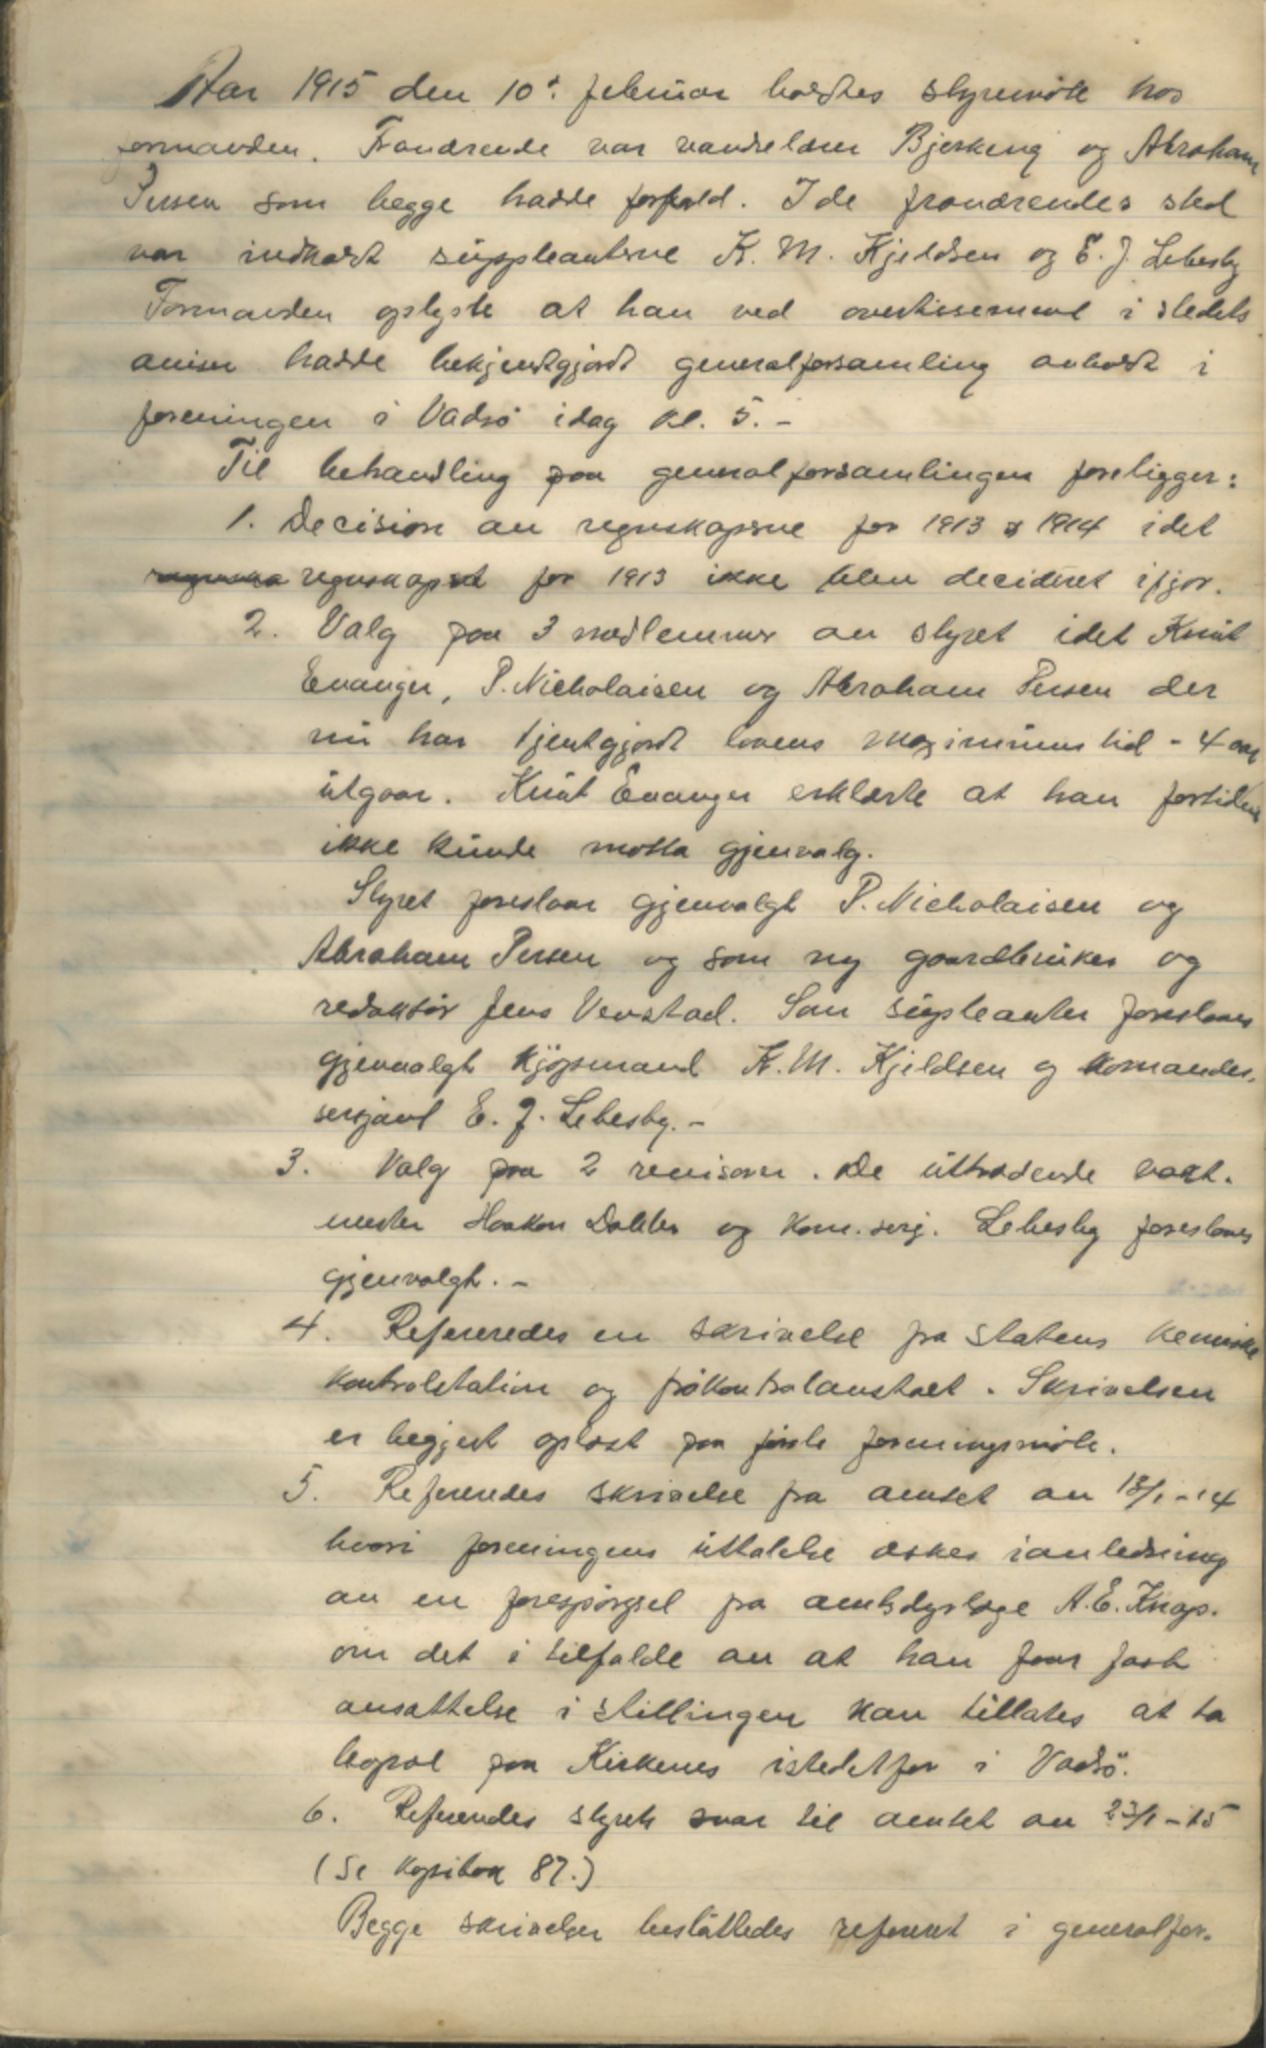 Aar 1915 den 10d. februar holdtes styremöte hos
formanden. Fraværende var vandrelærer Bjerkeng og Abraham
Persen som begge hadde forfald. I de fraværendes sted
var indkaldt suppleanterne K. M. Kjeldsen og E. J. Lebesby
Formanden oplyste at han ved avertissement i stedets
aviser hadde bekjendtgjordt generalforsamling avholdt i
foreningen i Vadsö idag kl. 5. -
Til behandling paa generalforsamlingen foreligger:
1. Decision av regnskaperne for 1913 & 1914 idet
regnskapet for 1913 ikke blev decideret ifjor.
2. Valg paa 3 medlemmer av styret idet Knut
Evanger, P. Nicholaisen og Abraham Persen der
nu har tjentgjordt lovens maximums tid - 4 aar
utgaar. Knut Evanger erklærte at han fortiden
ikke kunde motta gjenvalg.
Styret foreslaar gjenvalgt P. Nicholaisen og
Abraham Persen og som ny gaardbruker og
redaktör Jens Venstad. Som supleanter foreslaaes
gjenvalgt kjöpmand K. M. Kjeldsen og komander-
sersjant E. J. Lebesby. -
3. Valg paa 2 revisorer. De uttrædende vakt-
mester Haakon Dabler og kom. serj. Lebesby foreslaaes
gjenvalgt. -
4. Refereredes en skrivelse fra Statens kemiske
kontrolstation og frökontrolanstalt. Skrivelsen
er begjert oplæst paa förste foreningsmöte.
5. Refereredes skrivelse fra amtet av 18/1-14
hvori foreningens uttalelse æskes ianledning
av en forespörgsel fra amtsdyrlæge A. E. Knap.
om det i tilfælde av at han faar fast
ansættelse i stillingen kan tillates at ta
bopæl paa Kirkenes istedetfor i Vadsö.
6. Refereredes styrets svar til amtet av 23/1-15
(Se kopibok 87.)
Begge skrivelser besluttedes referert i generalfor-